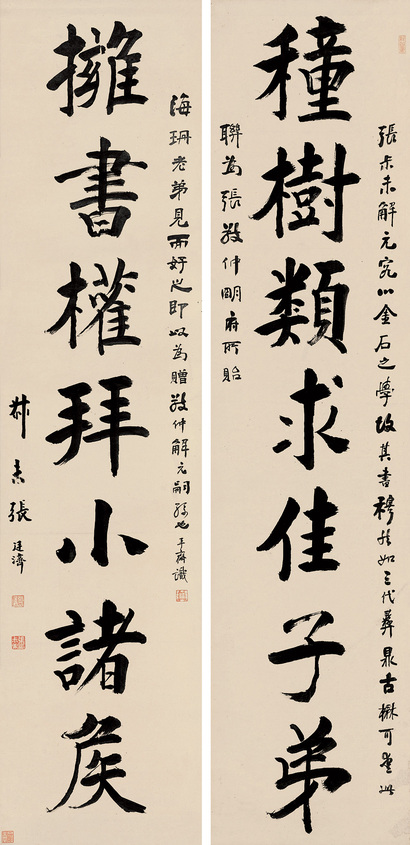 張未未解元究心金石之學故其書穆然如三代彝鼎古楙可愛此
種樹類求佳子弟
聯為張敬仲明府所貽
海珊老弟見而好之即以為贈敬仲解元嗣孫也平齋識
擁書權拜小諸矦
叔未張廷濟